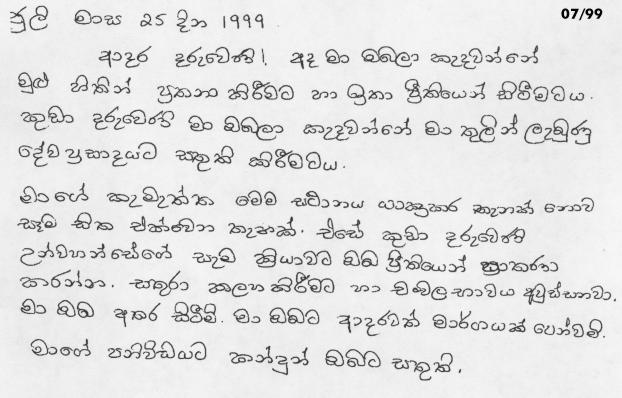 07/99
ජුලි මාස 25 දින 1999
ආදර දරුවෙණි! අද මා ඔබලා කැදවන්නේ
මුළු හිතින් ප්‍රතනා කිරීමට හා ඉතා ප්‍රීතියෙන් සිටීමටය.
කුඩා දරුවෙණි මා ඔබලා කැදවන්නේ මා තුලින් ලැබුණු
දේව ප්‍රසාදයට සතුති කිරීමටය.
මාගේ කැමැත්ත මෙම ස්ථානය යාත්‍රාකර තැනක් නොව
සෑම සිත එක්වෙන තැනක්. එසේ කුඩා දරුවෙණි
උන්වහන්සේගේ සෑම ක්‍රියාවට ඔබ ප්‍රීතියෙන්
කරන්න. සතුරා කලහ කිරීමට හා චංචල භාවය අවුස්සනවා.
මා ඔබ අතර සිටිමි. මා ඔබට ආදරවත් මාර්ගයක් පෙන්වමි.
මාගේ පනිවිඩයට කන්දුන් ඔබට සතුති.